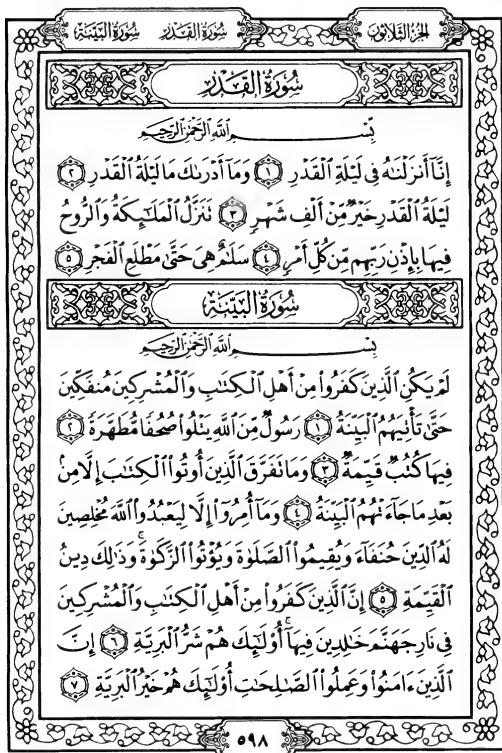 سُورَةُ البَيِّنَةِ سُورَةُ القَدْرِ الجُزءُ الثَّلَاثُونَ
سُورَةُ القَدْرِ
بِسْمِ اللَّهِ الرَّحْمَٰنِ الرَّحِيمِ
إِنَّا أَنزَلْنَٰهُ فِى لَيْلَةِ ٱلْقَدْرِ ١ وَمَآ أَدْرَىٰكَ مَا لَيْلَةُ ٱلْقَدْرِ ٢
لَيْلَةُ ٱلْقَدْرِ خَيْرٌ مِّنْ أَلْفِ شَهْرٍ ٣ تَنَزَّلُ ٱلْمَلَٰٓئِكَةُ وَٱلرُّوحُ
فِيهَا بِإِذْنِ رَبِّهِم مِّن كُلِّ أَمْرٍ ٤ سَلَٰمٌ هِىَ حَتَّىٰ مَطْلَعِ ٱلْفَجْرِ ٥
سُورَةُ البَيِّنَةِ
بِسْمِ اللَّهِ الرَّحْمَٰنِ الرَّحِيمِ
لَمْ يَكُنِ ٱلَّذِينَ كَفَرُوا۟ مِنْ أَهْلِ ٱلْكِتَٰبِ وَٱلْمُشْرِكِينَ مُنفَكِّينَ
حَتَّىٰ تَأْتِيَهُمُ ٱلْبَيِّنَةُ ١ رَسُولٌ مِّنَ ٱللَّهِ يَتْلُوا۟ صُحُفًا مُّطَهَّرَةً ٢
فِيهَا كُتُبٌ قَيِّمَةٌ ٣ وَمَا تَفَرَّقَ ٱلَّذِينَ أُوتُوا۟ ٱلْكِتَٰبَ إِلَّا مِنۢ
بَعْدِ مَا جَآءَتْهُمُ ٱلْبَيِّنَةُ ٤ وَمَآ أُمِرُوٓا۟ إِلَّا لِيَعْبُدُوا۟ ٱللَّهَ مُخْلِصِينَ
لَهُ ٱلدِّينَ حُنَفَآءَ وَيُقِيمُوا۟ ٱلصَّلَوٰةَ وَيُؤْتُوا۟ ٱلزَّكَوٰةَ ۚ وَذَٰلِكَ دِينُ
ٱلْقَيِّمَةِ ٥ إِنَّ ٱلَّذِينَ كَفَرُوا۟ مِنْ أَهْلِ ٱلْكِتَٰبِ وَٱلْمُشْرِكِينَ
فِى نَارِ جَهَنَّمَ خَٰلِدِينَ فِيهَآ ۚ أُو۟لَٰٓئِكَ هُمْ شَرُّ ٱلْبَرِيَّةِ ٦ إِنَّ
ٱلَّذِينَ ءَامَنُوا۟ وَعَمِلُوا۟ ٱلصَّٰلِحَٰتِ أُو۟لَٰٓئِكَ هُمْ خَيْرُ ٱلْبَرِيَّةِ ٧
٥٩٨